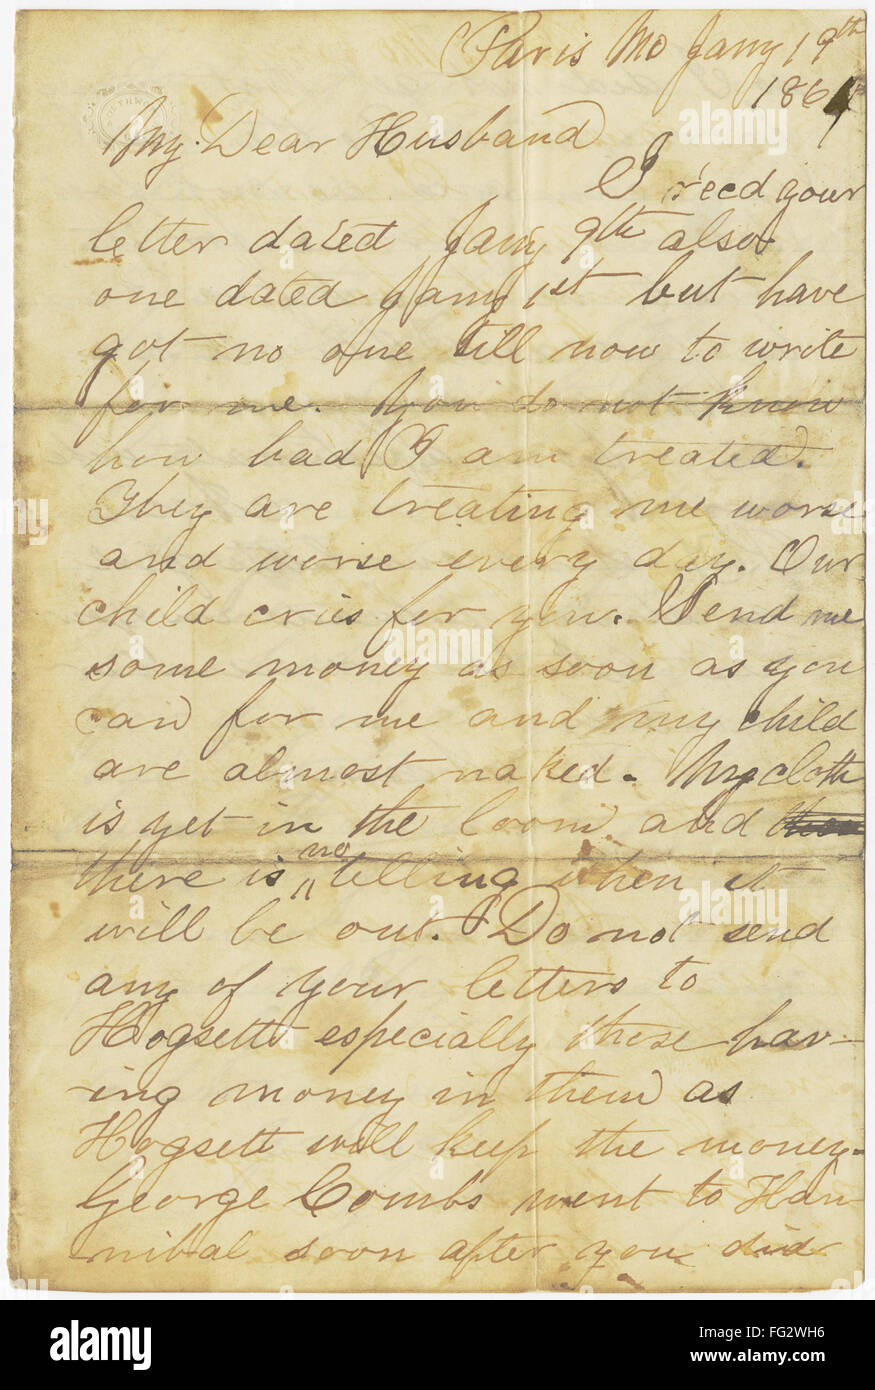 Paris Mo Jany 19th
1864
My Dear Husband
I r'ecd your
letter dated Jany 9th also
one dated Jany 1st but have
got no one till now to write
for me. You do not know
how bad I am treated.
They are treating me worse
and worse every day. Our
child cries for you. Send me
some money as soon as you
can for me and my child
are almost naked. My cloth
is yet in the loom and
there is no telling when it
will be out. Do not send
any of your letters to
Hogsett especially those hav-
ing money in them as
Hogsett will keep the money.
George Combs went to Han-
nibal soon after you did
alamy
Image ID: FG2WH6
www.alamy.com